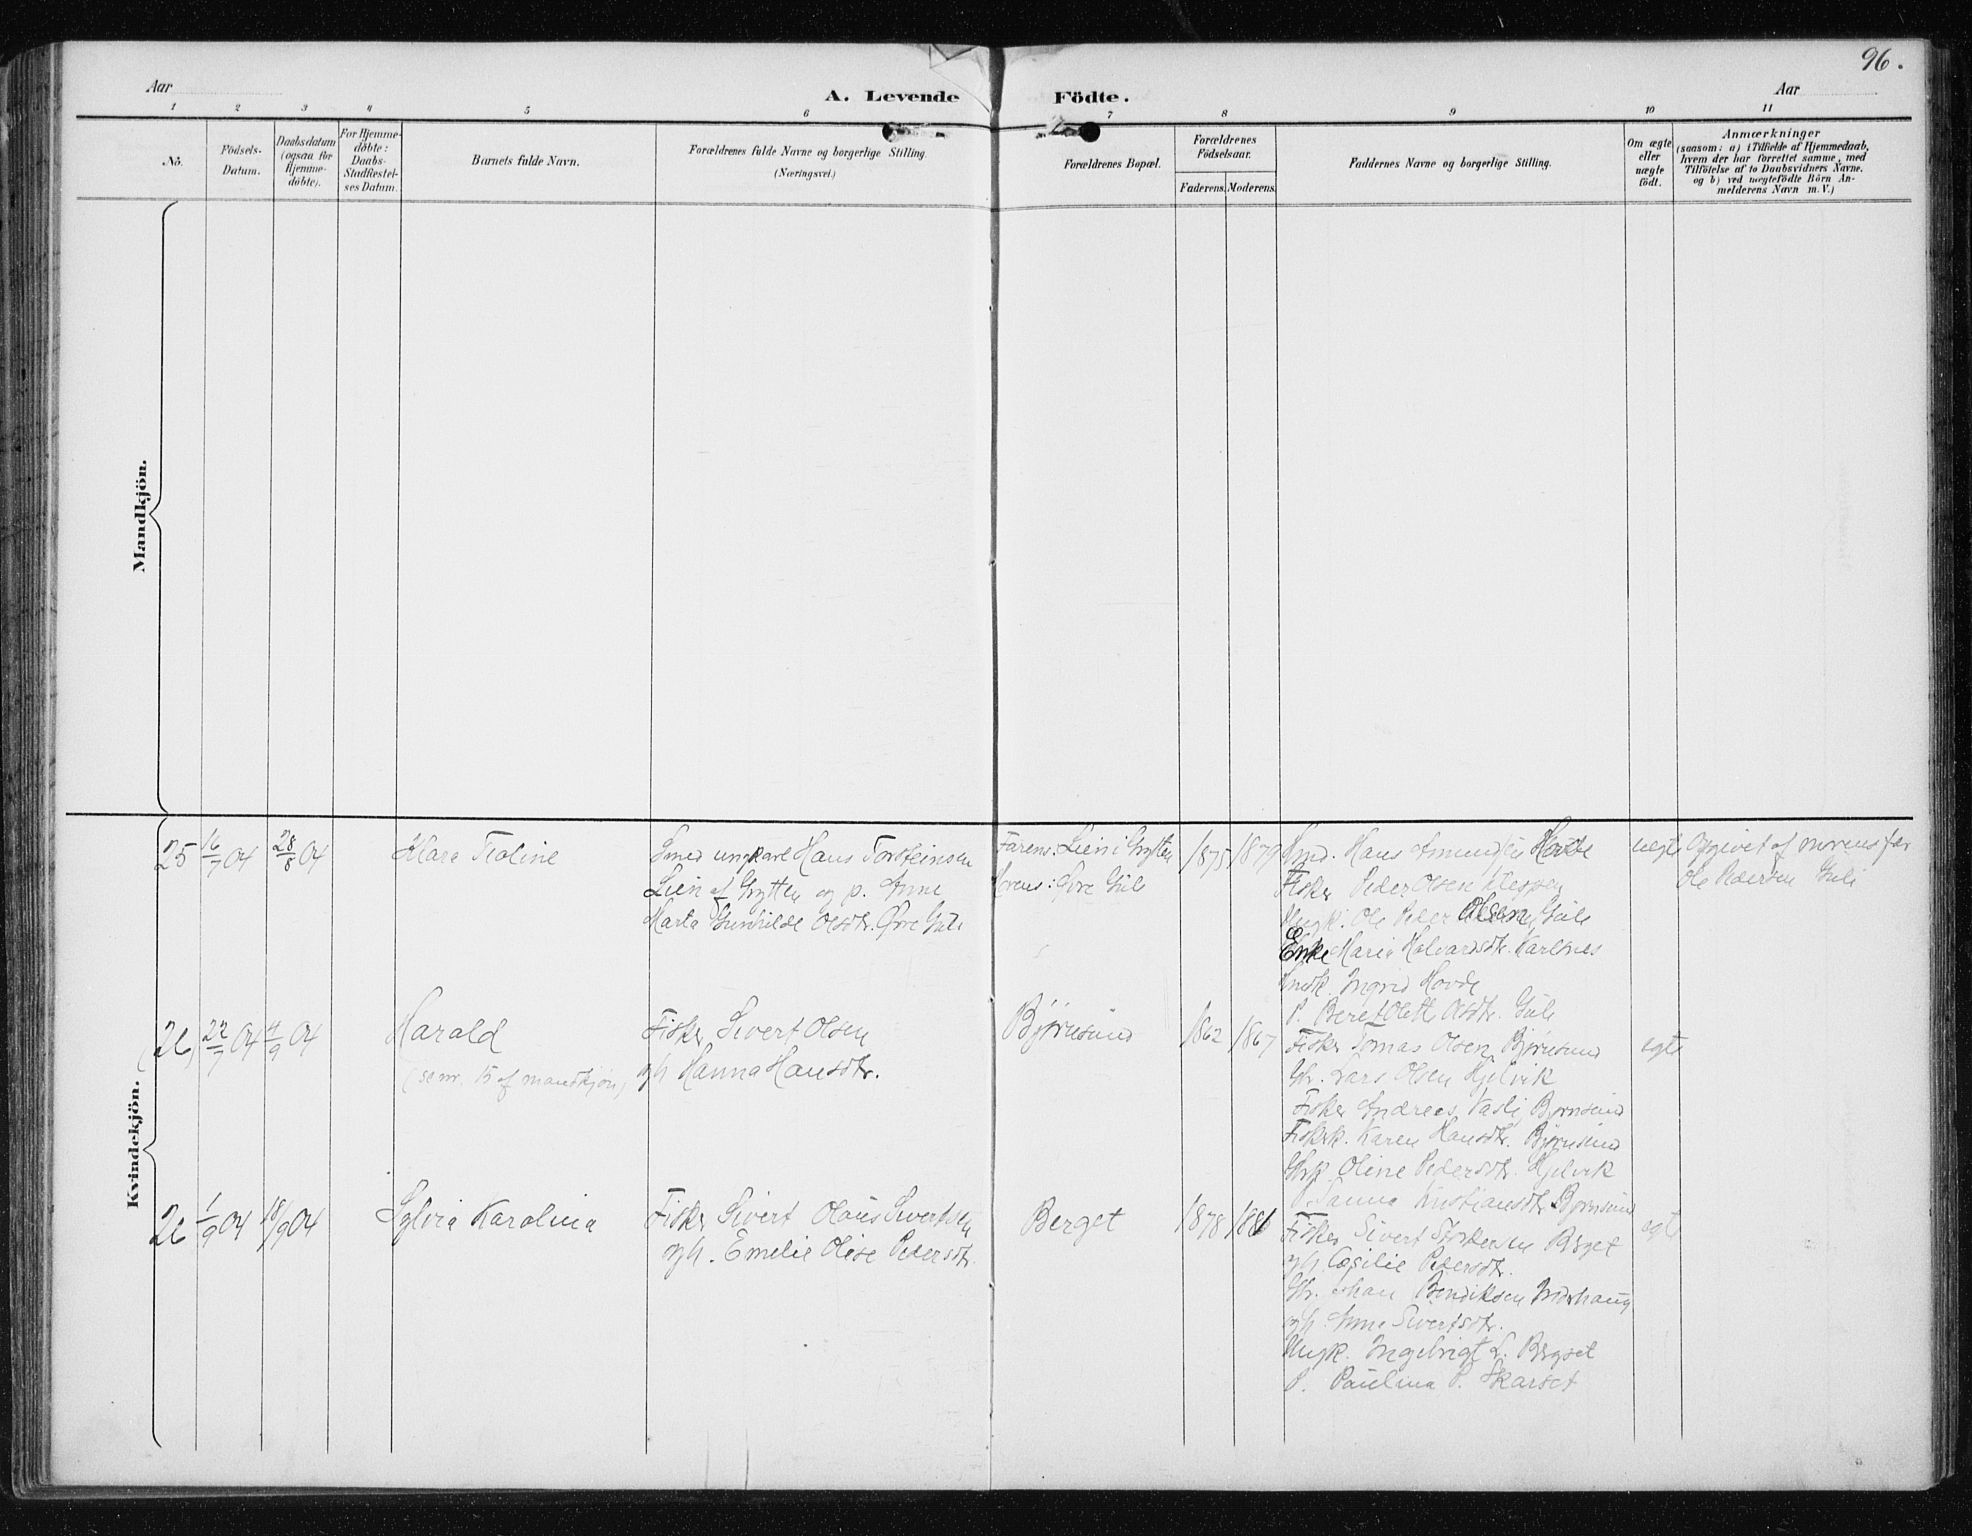 96.
Aar
A. Levende Födte.
Aar
1 2 3 4 5 6 7 8 9 10 11
No.
Födsels-
Datum.
Daabsdatum
(ogsaa for
Hjemme-
døbte).
For Hjemme-
døbte:
Daabs-
Stadfæstel-
ses Datum.
Barnets fulde Navn.
Forældrenes fulde Navne og borgerlige Stilling.
(Næringsvei.)
Forældrenes Bopæl.
Forældrenes
Födselsaar.
Faderens. Moderens.
Faddernes Navne og borgerlige Stilling.
Om ægte
eller
uægte
födt.
Anmærkninger
(saasom: a) i Tilfælde af Hjemmedaab,
hvem der har forrettet samme, med
Tilföielse af to Daabsvidners Navne.
og b) ved uægtefödte Börn An-
melderens Navn m. V.)
Mandkjön.
Kvindekjön.
25
16/7 04
28/8 04
Klara Fioline
Smed ungkarl Hans Torsteinsen
Lien af Grytten og p. Anne
Marta Gunhilde Olsdtr. Øvre Gule
Farens: Lien i Grytten
Morens: Øvre Gule
1875
1879
Smd. Hans Amundsen Hovde
Fisker Peder Olsen
Ungk. Ole Peder Olsen Gule
Enke Maria Halvardsdtr. Varhnes
Smedk. Ingrid Hovde
P. Beret Olette Olsdtr. Gule
uegte
Opgivet af morens far
Ole Pedersen Gule
(26)
22/7 04
4/9 04
Harald
(se nr. 15 af mandkjøn)
Fisker Sivert Olsen
gh Hanna Hansdtr.
Bjørnsund
1862
1867
Fisker Tomas Olsen Bjørnsund
Gbr. Lars Olsen Hjelvik
Fisker Andreas Bjørnsund
Fiskerk. Karen Hansdtr. Bjørnsund
Gbrk. Oline Pedersdtr. Hjelvik
P. Sanna Kristiansdtr. Bjørnsund
egte
26
1/9 04
18/9 04
Sylvia Karolina
Fisker Sivert Olaus Sivertsen
gh. Emelie Olise Pedersdtr.
Berget
1878
1881
Fisker Sivert Berget
gh. Cesilie Pedersdtr.
Gbr. Johan Bendiksen
gh. Anne Sivertsdtr.
Ungk. Ingebrigt L. Bergset
P. Paulina P. Skarset
egte